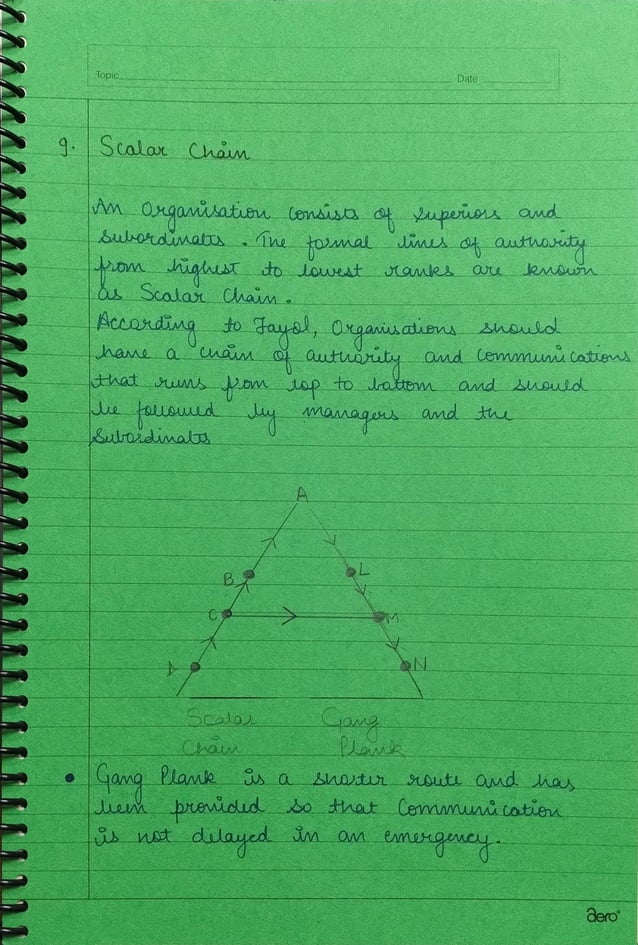 Topic Date
9. Scalar Chain
An Organisation consists of superiors and
subordinates. The formal lines of authority
from highest to lowest ranks are known
as Scalar Chain.
According to Fayol, Organisations should
have a chain of authority and communications
that runs from top to bottom and should
be followed by managers and the
subordinates
A
B L
C M
D N
Scalar Gang
Chain Plank
• Gang Plank is a shorter route and has
been provided so that communication
is not delayed in an emergency.
aero